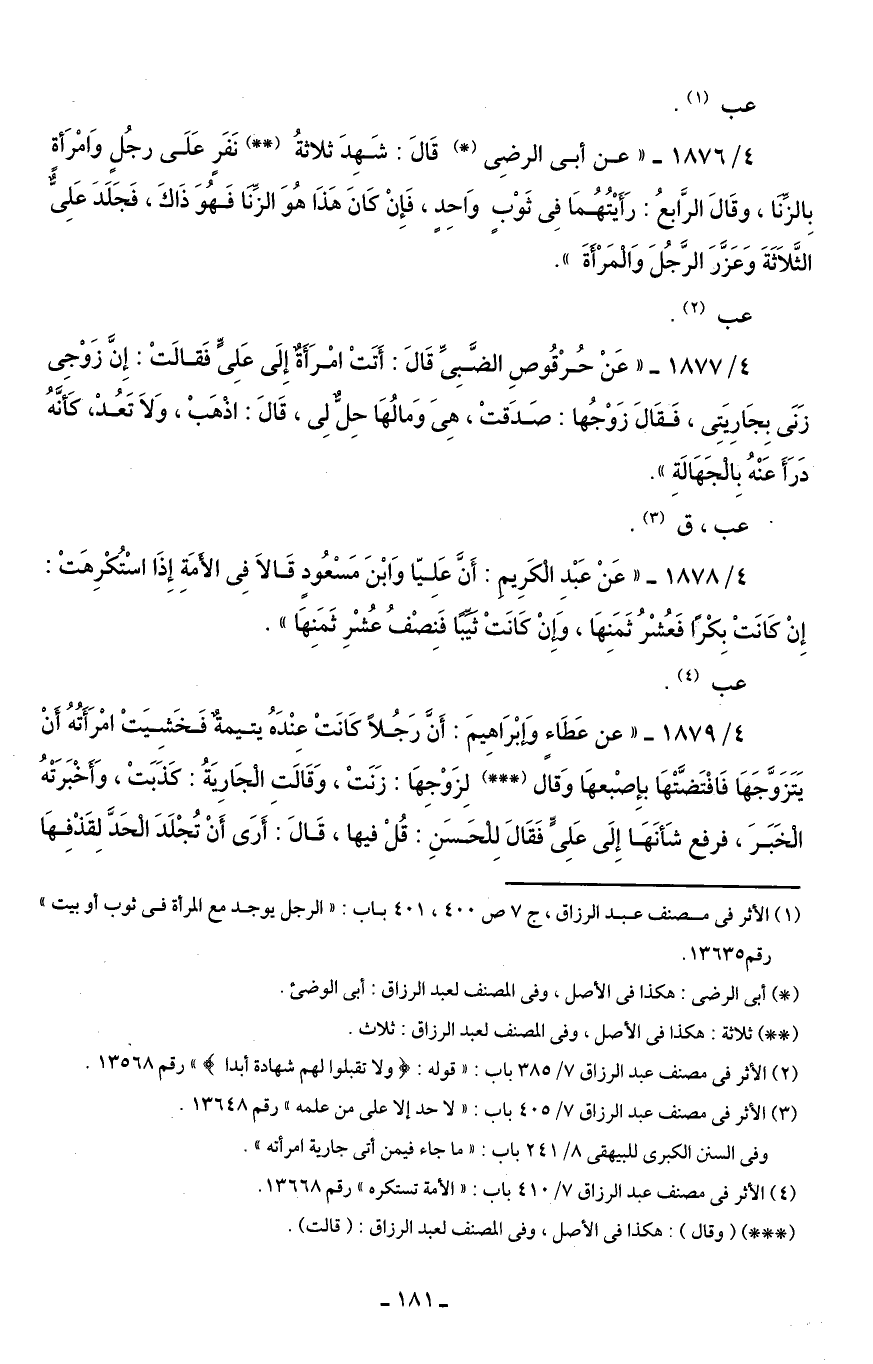 عب (١) .
٤/ ١٨٧٦ ـ « عـن أبـى الرضِى (*) قَالَ : شَـهِدَ ثلاثةُ (**) نَفَرٍ عَلَـى رجُلٍ وَامْرَأةٍ
بالزِّنَا ، وقَالَ الرَّابعُ : رَأَيْتُهُـمَا فِى ثَوْبٍ وَاحِدٍ ، فَإِنْ كَانَ هَذَا هُوَ الزِّنَا فَـهُوَ ذَاكَ ، فَجَلَدَ عَلِىٌّ
الثَّلاَثَةَ وَعَزَّرَ الرَّجُلَ وَالْمَرْأَةَ ».
عب (٢) .
٤/ ١٨٧٧ ـ « عَنْ حُـرْقُوصِ الضَّـبِىِّ قَالَ : أَتَتْ امْـرَأَةٌ إِلَى عَلِىٍّ فَقـالَتْ : إِنَّ زَوْجِى
زَنَى بِجَارِيَتِى ، فَـقَالَ زَوْجُها : صَـدَقتْ ، هِىَ وَمالُهَا حِلٌّ لِى ، قَالَ : اذْهَبْ ، وَلاَ تَعُـدْ، كَأَنَّهُ
دَرَأَ عَنْهُ بِالْجَهَالَةِ ».
عب ، ق (٣) .
٤/ ١٨٧٨ ـ « عَنْ عَبْدِ الْكَرِيمِ : أَنَّ عَلِـيّا وَابْنَ مَسْعُودٍ قَـالاَ فِى الأمَةِ إِذَا اسْتُكْرِهَتْ :
إِنْ كَانَتْ بِكْرًا فَعُشْرُ ثَمَنِهَا ، وَإِنْ كَانَتْ ثَيِّبًا فَنِصْفُ عُشْرِ ثَمَنِهَا » .
عب (٤) .
٤/ ١٨٧٩ ـ « عن عَطَاءٍ وَإِبْرَاهِيمَ : أَنَّ رَجُـلاً كَانَتْ عِنْدَهُ يتـيمةٌ فَـخَشـيَتْ امْرَأَتُهُ أَنْ
يَتَزَوَّجَهَا فَافْتَضَّتْهَا بإصْبعها وَقَال (***) لِزَوْجِهَا : زَنَتْ ، وَقَالَتِ الْجَارِيَةُ : كَذَبَتْ ، وَأَخْبَرَتْهُ
الْخَبَـرَ ، فرفع شَأنَهَـا إِلَى عَلِىٍّ فَقَالَ لِلْحَـسَنِ : قُلْ فيها ، قَـالَ : أَرَى أَنْ تُجْلَدَ الْحَدَّ لِقَذْفِـهَا
(١) الأثر فى مـصنف عبـد الرزاق ، ج ٧ ص ٤٠٠ ، ٤٠١ بـاب : « الرجل يوجـد مع المرأة فـى ثوب أو بيت »
رقم١٣٦٣٥.
(*) أبى الرضى : هكذا فى الأصل ، وفى المصنف لعبد الرزاق : أبى الوضئ .
(**) ثلاثة : هكذا فى الأصل ، وفى المصنف لعبد الرزاق : ثلاث .
(٢) الأثر فى مصنف عبد الرزاق ٧/ ٣٨٥ باب : « قوله : ﴿ ولا تقبلوا لهم شهادة أبدا ﴾ » رقم ١٣٥٦٨ .
(٣) الأثر فى مصنف عبد الرزاق ٧/ ٤٠٥ باب : « لا حد إلا على من علمه » رقم ١٣٦٤٨ .
وفى السنن الكبرى للبيهقى ٨/ ٢٤١ باب : « ما جاء فيمن أتى جارية امرأته » .
(٤) الأثر فى مصنف عبد الرزاق ٧/ ٤١٠ باب : « الأمة تستكره » رقم ١٣٦٦٨.
(***) ( وقال ) : هكذا فى الأصل ، وفى المصنف لعبد الرزاق : ( قالت) .
ـ ١٨١ ـ